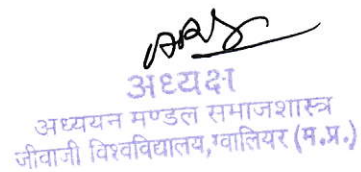 अध्यक्ष
अध्ययन मण्डल समाजशास्त्र
जीवाजी विश्वविद्यालय,ग्वालियर (म.प्र.)